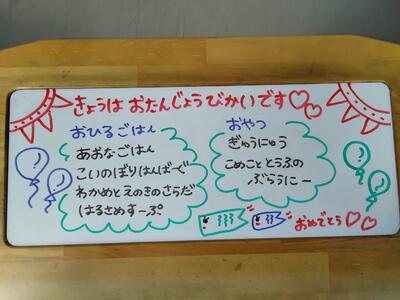 きょうは おたんじょうびかいです♡♡
おひるごはん
あおなごはん
こいのぼりはんばーぐ
わかめとえのきのさらだ
はるさめすーぷ
おやつ
ぎゅうにゅう
こめこととうふの
ぶらうにー
おめでとう♡♡